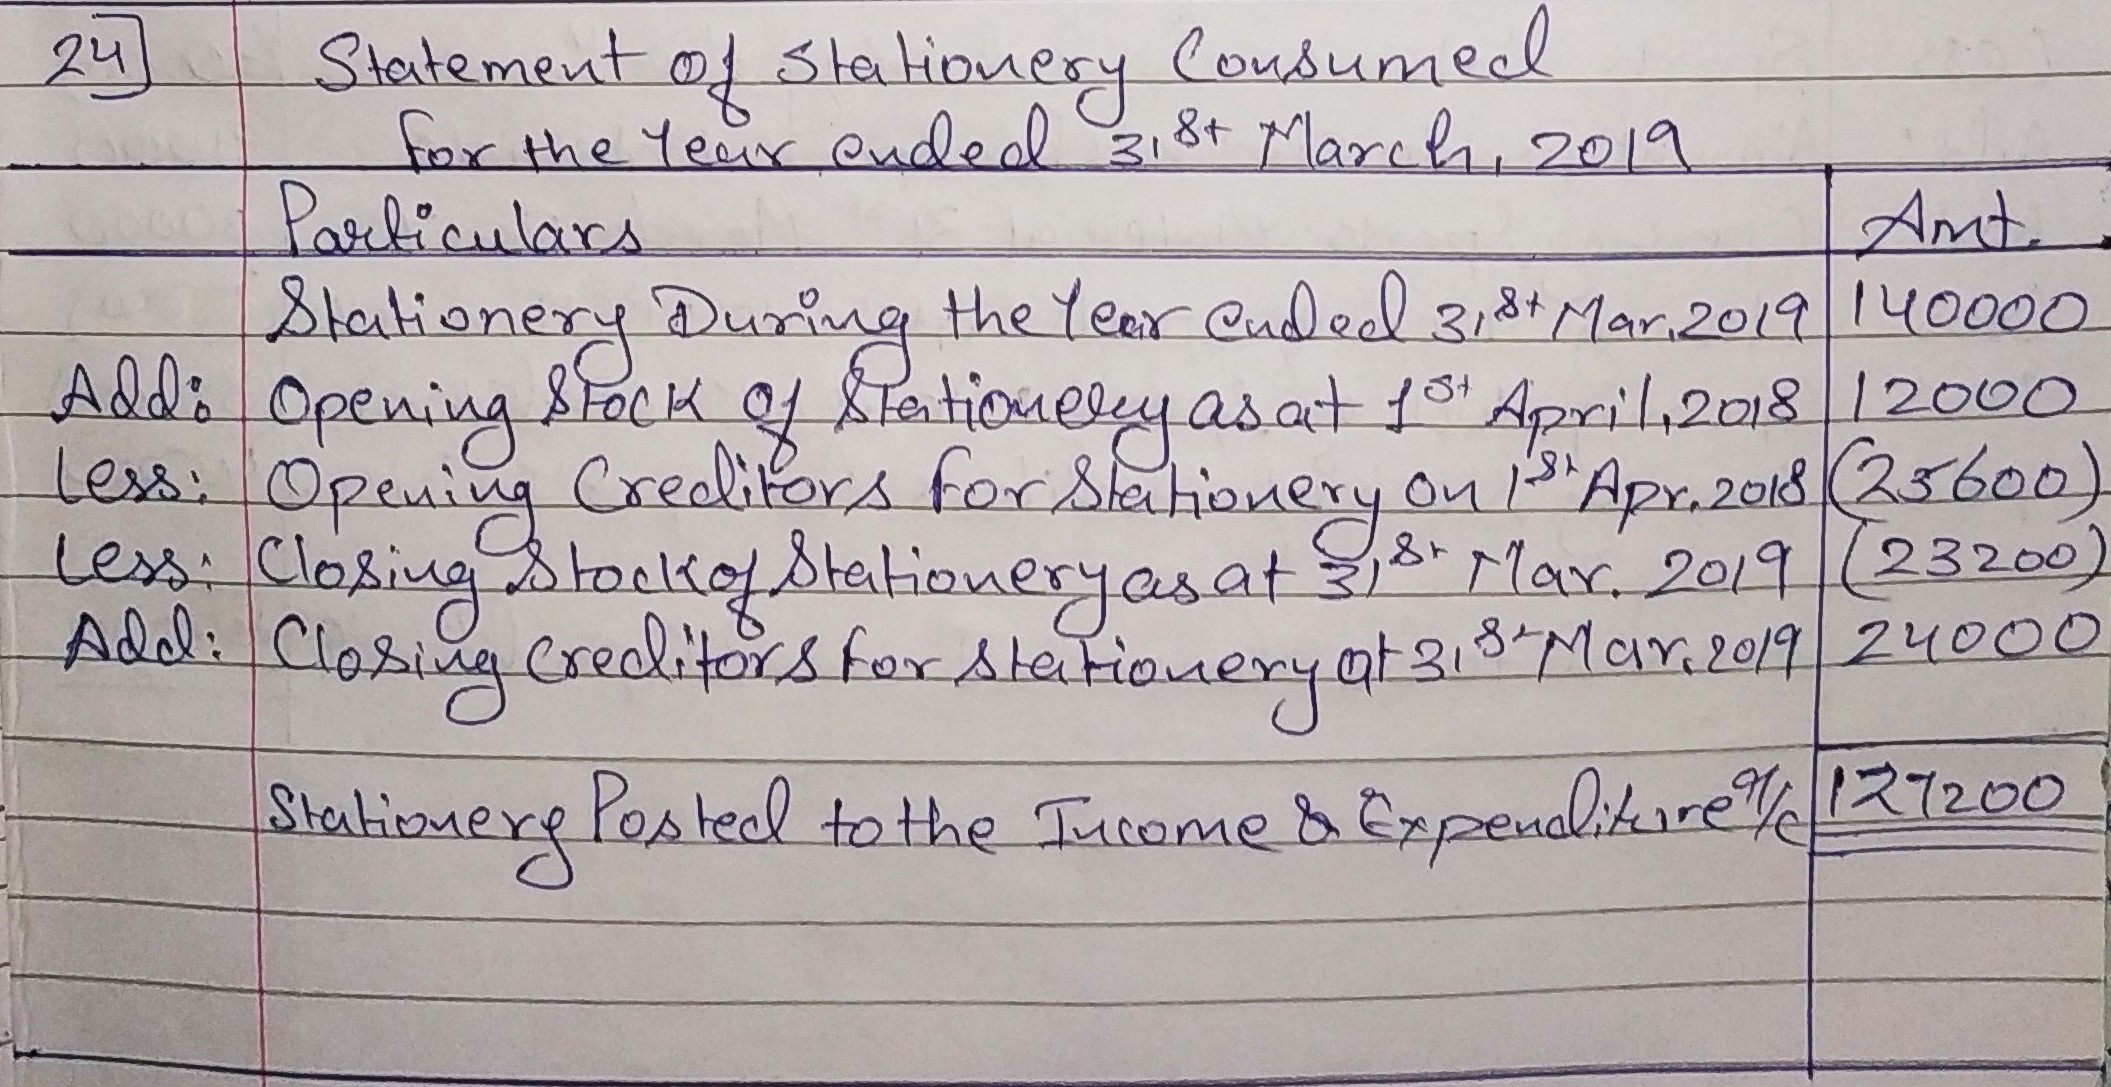 24] Statement of Stationery Consumed
for the Year ended 31st March, 2019
Particulars Amt.
Stationery During the Year ended 31st Mar, 2019 140000
Add: Opening Stock of Stationery as at 1st April, 2018 12000
Less: Opening Creditors for Stationery on 1st Apr. 2018 (25600)
Less: Closing Stock of Stationery as at 31st Mar. 2019 (23200)
Add: Closing Creditors for Stationery at 31st Mar. 2019 24000
Stationery Posted to the Income & Expenditure a/c 127200